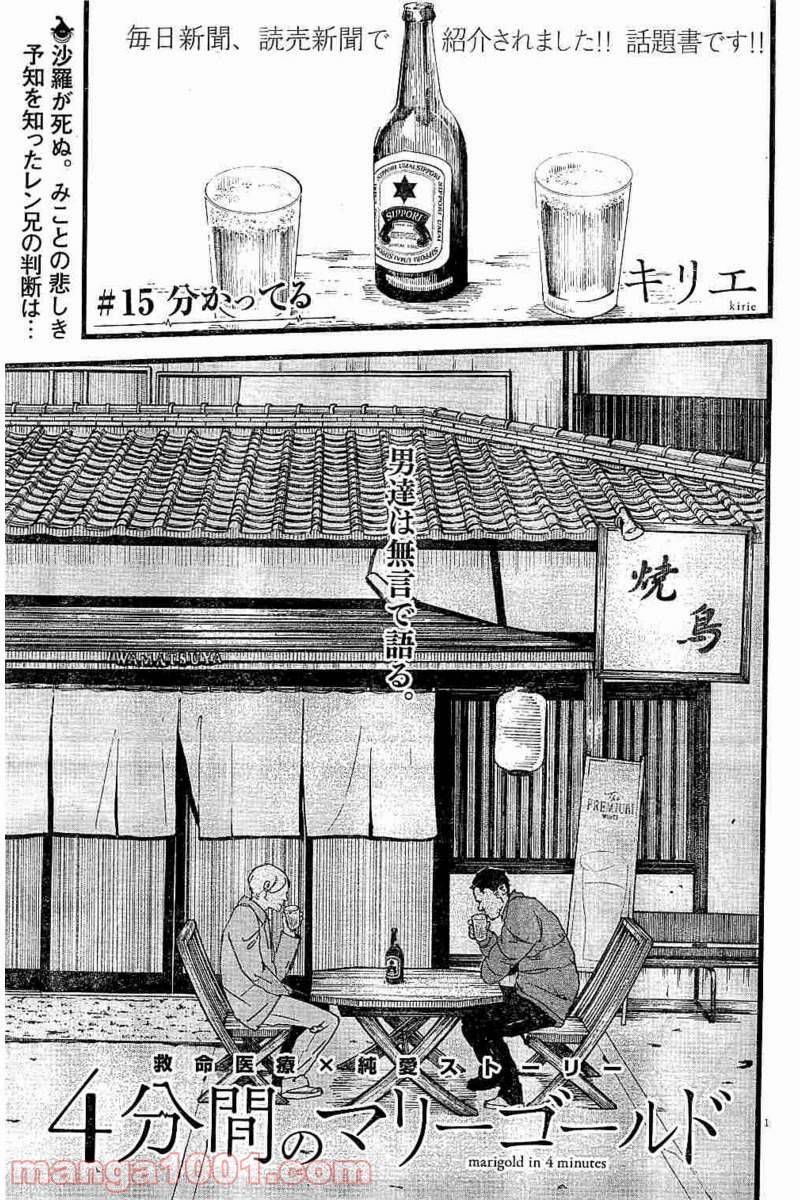 毎日新聞、読売新聞で紹介されました!! 話題書です!!
沙羅が死ぬ。みことの悲しき
予知を知ったレン兄の判断は…
SIPPORI UMAI SIPPORI
SIPPORI
#15 分かってる
キリエ
kirie
男達は無言で語る。
焼鳥
WAMATSUYA
The
PREMIUM
救命医療×純愛ストーリー
4分間のマリーゴールド
marigold in 4 minutes
1
manga1001.com